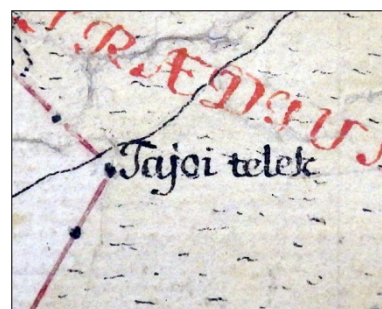 TRÆDIUM
Tajoi telek